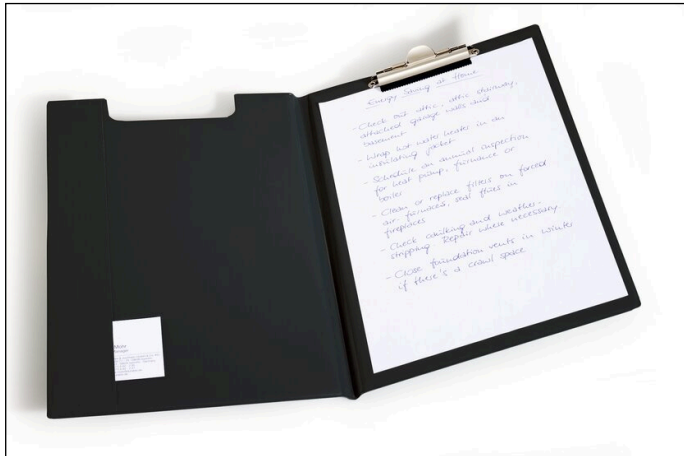 Energy Saving at Home
- Check out attic, attic stairway,
attached garage walls and
basement
- Wrap hot water heater in an
insulating jacket
- Schedule an annual inspection
for heat pump, furnance or
boiler
- Clean or replace filters on forced
air furnaces, seal flues in
fireplaces
- Check caulking and weather-
stripping Repair where necessary
- Close foundation vents in Winter
if there's a crawl space